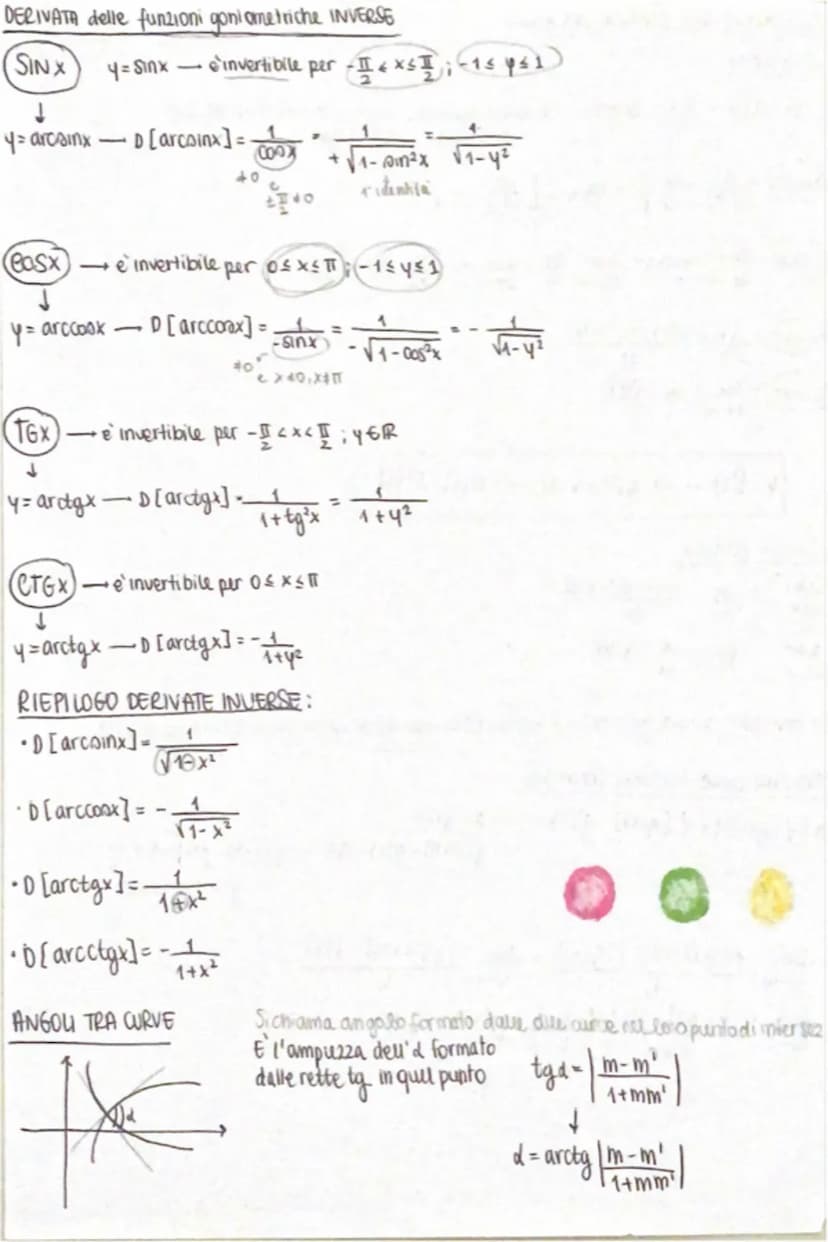 DERIVATA delle funzioni goniometriche INVERSE
SIN x y = sinx → è invertibile per -π/2 ≤ x ≤ π/2 ; -1 ≤ y ≤ 1
↓
y = arcsinx — D [arcsinx] = 1/cosx = 1/+√1-sin²x = 1/√1-y²
≠0 e ±π/2 ≠0 x identità
COSX → è invertibile per 0 ≤ x ≤ π ; -1 ≤ y ≤ 1
↓
y = arccosx — D [arccosx] = 1/-sinx = 1/-√1-cos²x = - 1/√1-y²
≠0 e x≠0, x≠π
TGX → è invertibile per -π/2 < x < π/2 ; y∈R
↓
y = arctgx — D [arctgx] = 1/1+tg²x = 1/1+y²
CTGX → è invertibile per 0 ≤ x ≤ π
↓
y = arctgx — D [arctgx] = - 1/1+y²
RIEPILOGO DERIVATE INVERSE:
· D [arcsinx] = 1/√1-x²
· D [arccosx] = - 1/√1-x²
· D [arctgx] = 1/1+x²
· D [arcctgx] = - 1/1+x²
ANGOLI TRA CURVE
Si chiama angolo formato dalle due curve nel loro punto di
È l'ampiezza dell'α formato
dalle rette tg in quel punto
α
tgα = |m-m'/1+mm'|
↓
α = arctg |m-m'/1+mm'|